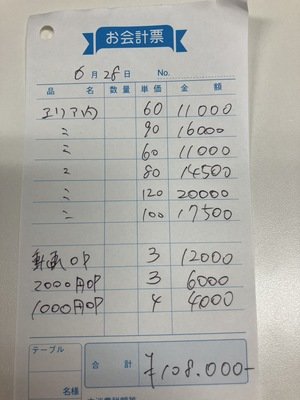 お会計票
6月28日 No.
品名 数量 単価 金額
エリア内 60 11000
〃 90 16000
〃 60 11000
〃 80 14500
〃 120 20000
〃 100 17500
動画OP 3 12000
2000円OP 3 6000
1000円OP 4 4000
テーブル
名様
合計 ¥108.000-